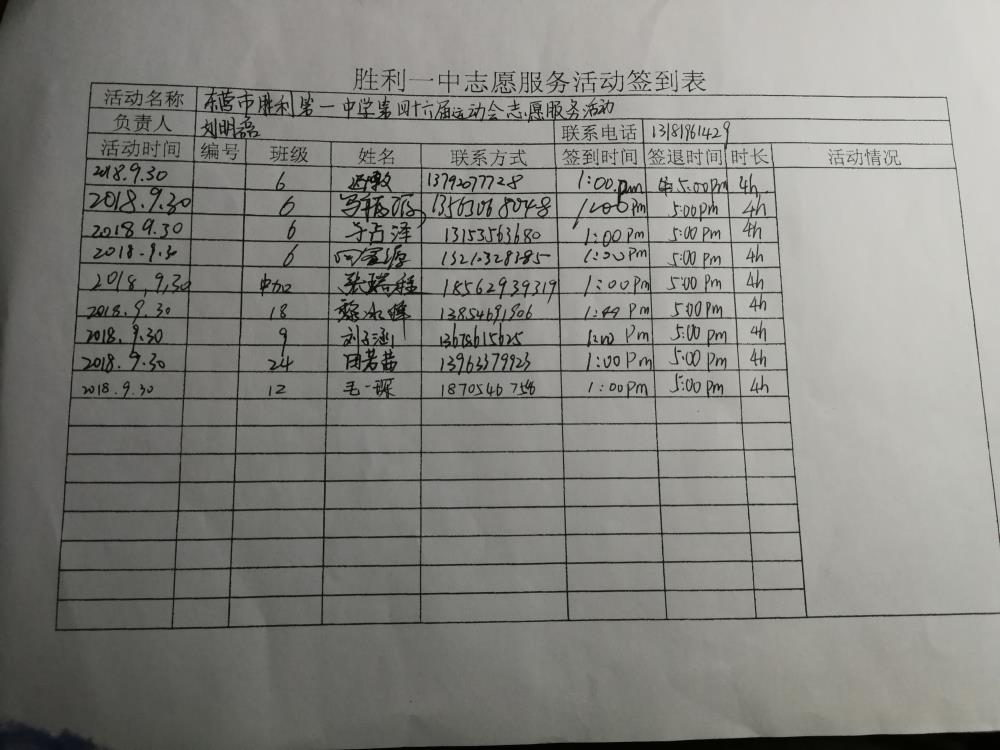 胜利一中志愿服务活动签到表
活动名称 东营市胜利第一中学第四十六届运动会志愿服务活动
负责人 刘明磊 联系电话 13181961429
活动时间 编号 班级 姓名 联系方式 签到时间 签退时间 时长 活动情况
2018.9.30 6 13792077728 1:00pm 5:00pm 4h
2018.9.30 6 13563068048 1:00pm 5:00pm 4h
2018.9.30 6 于占泽 13153563680 1:00pm 5:00pm 4h
2018.9.30 6 1:00pm 5:00pm 4h
2018.9.30 中加 张瑞程 18562939319 1:00pm 5:00pm 4h
2018.9.30 18 13854691906 1:00pm 5:00pm 4h
2018.9.30 9 刘子涵 13678615625 1:00pm 5:00pm 4h
2018.9.30 24 田若茜 13963379923 1:00pm 5:00pm 4h
2018.9.30 12 毛一琛 1:00pm 5:00pm 4h